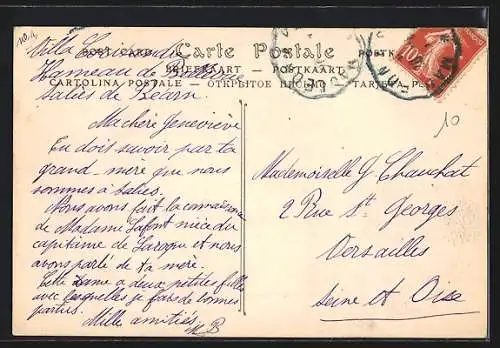 Villa
POST CARD — Carte Postale — POSTK
Hameau de
BRIEFKAART — POSTKAART
CARTOLINA POSTALE — ОТКРЫТОЕ ПИСЬМО — TARJETA
Salies de Béarn
Ma chère Geneviève
Tu dois savoir par ta
grand-mère que nous
sommes à Salies.
Nous avons fait la connaissance
de Madame Lafont nièce du
capitaine de Laroque et nous
avons parlé de ta mère.
Cette dame a deux petites filles
avec lesquelles je fais de bonnes
parties.
Mille amitiés MB
10
10
Mademoiselle G Chauchat
2 Rue St. Georges
Versailles
Seine et Oise